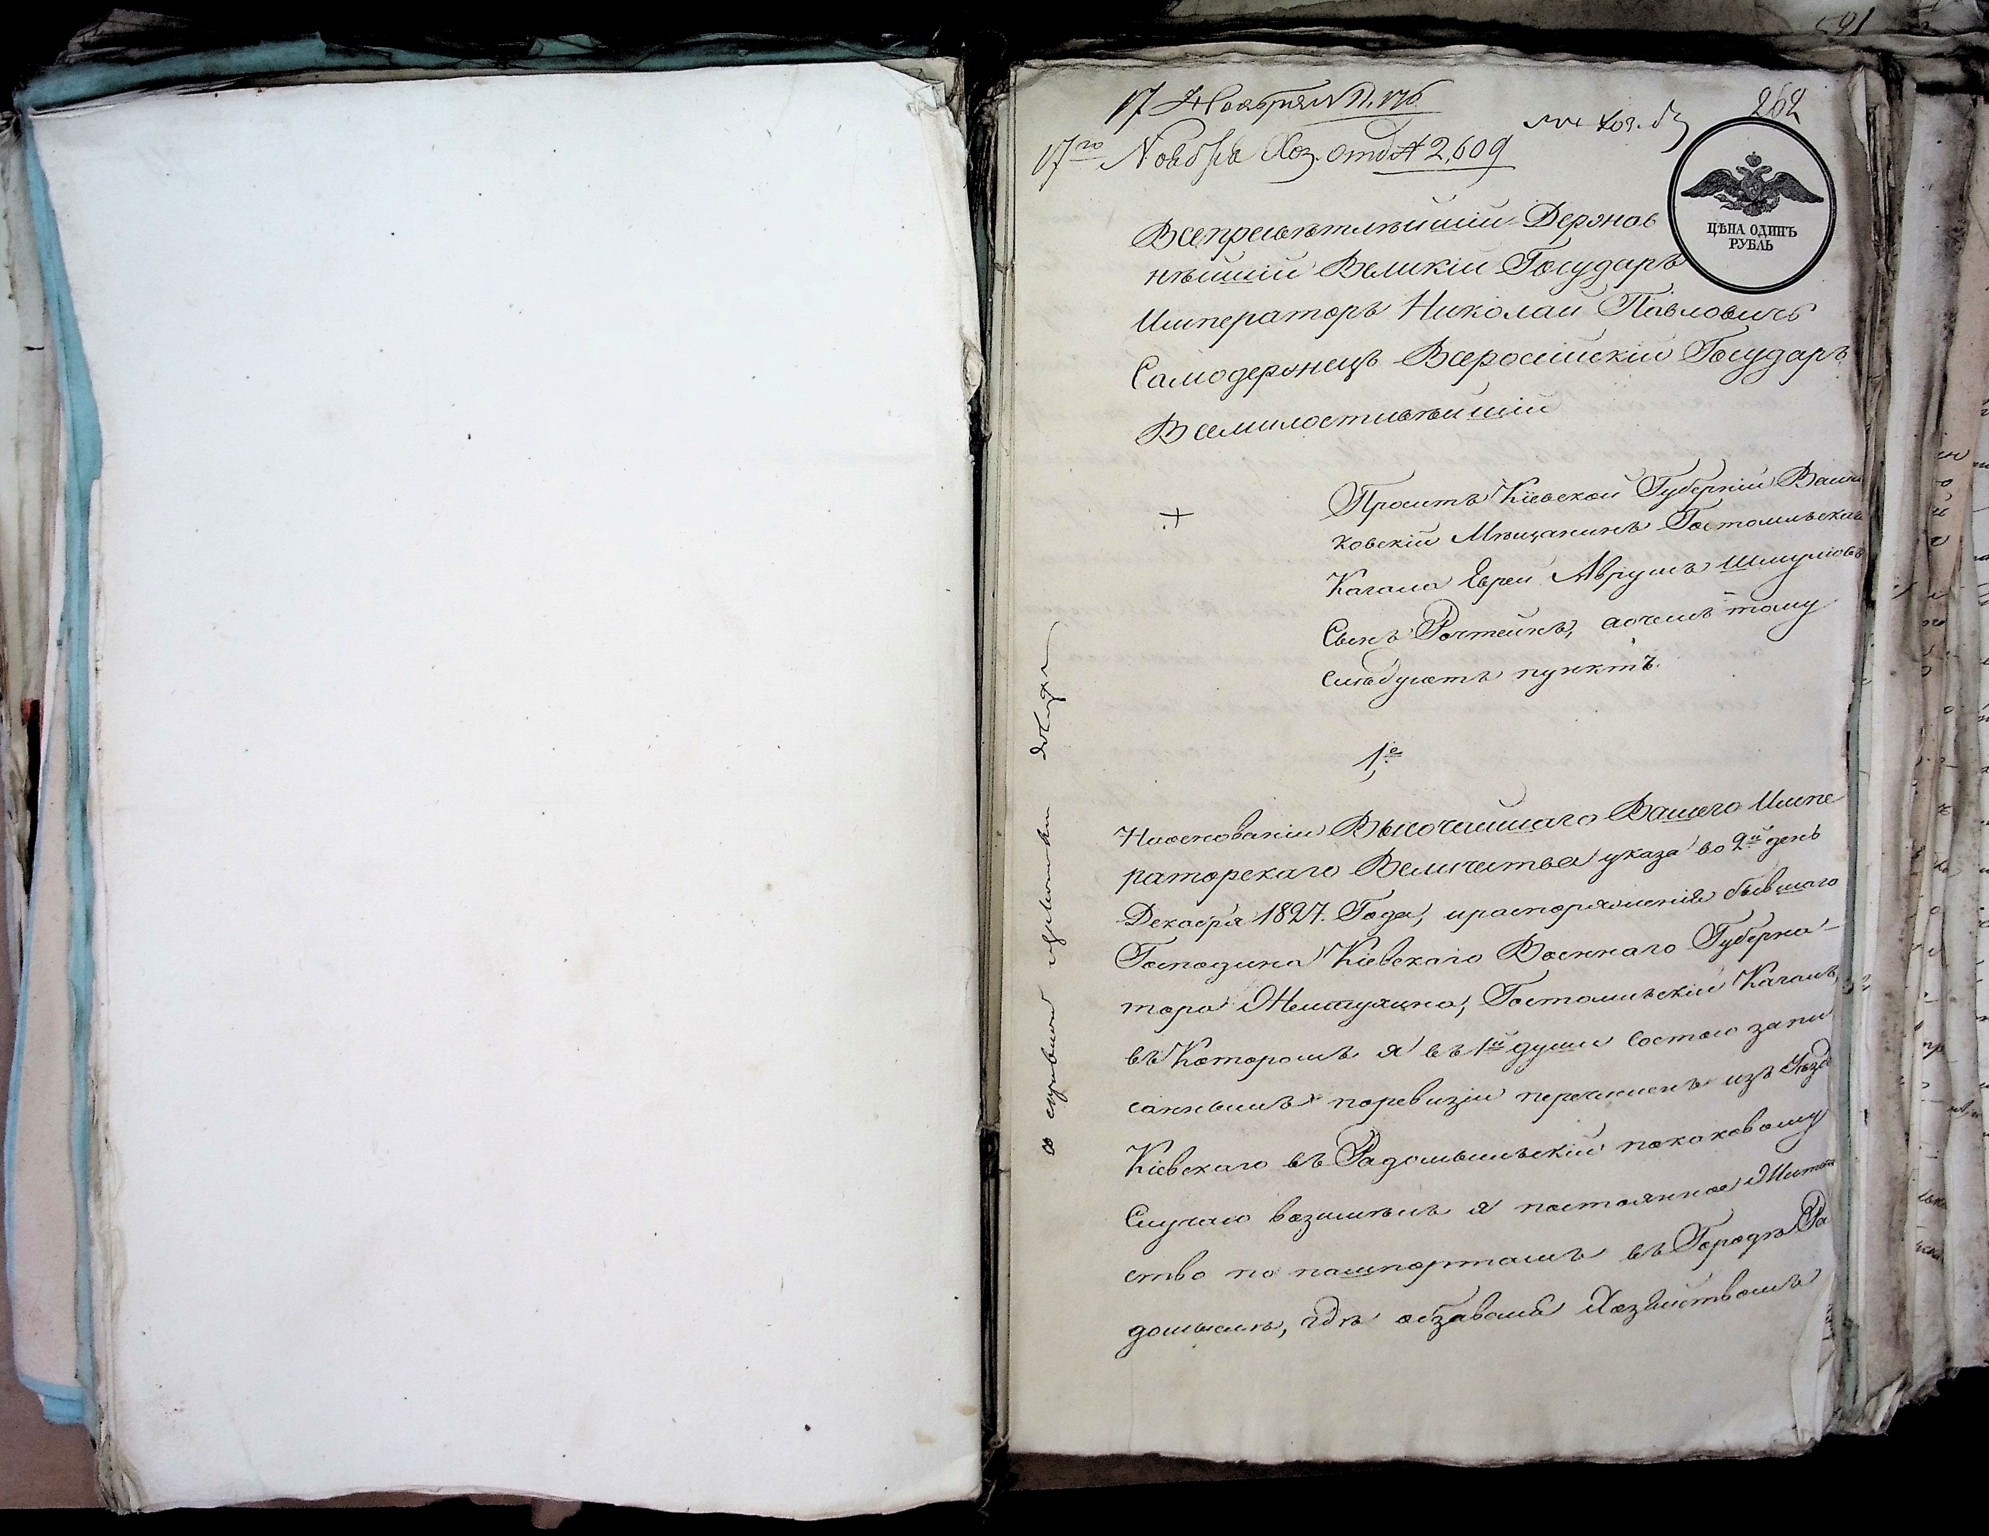 262
17 Ноября
17го Ноября Хоз. отд № 2,609
ЦѢНА ОДИНЪ
РУБЛЬ
Всепресвѣтлѣйшій Держав
нѣйшій Великій Государь
Императоръ Николай Павловичь
Самодержецъ Всеросійскій Государь
Всемилостивѣйшій
Проситъ Кіевской Губерніи Василь
ковскій Мѣщанинъ Гостомльскаго
Кагала Еврей Аврумъ Шмулювъ
Сынъ а очемъ тому
слѣдуетъ пунктъ.
1е
Наоснованіи Высочайшаго Вашего Импе
раторскаго Величества указа во 2й день
Декабря 1827. Года, ираспоряженія бывшаго
Господина Кіевскаго Военнаго Губерна-
тора Желтухина, Гостомльскій Кагалъ,
въ Которомъ я въ 1й души состою запи
саннымъ поревизіи перечисленъ изъ Уѣзда
Кіевскаго въ Радомысльскій покаковому
Случаю возимѣлъ я постоянное Житель
ство по пашпортамъ въ Городѣ Ра
домыслѣ, гдѣ обзавелся Хозяйствомъ